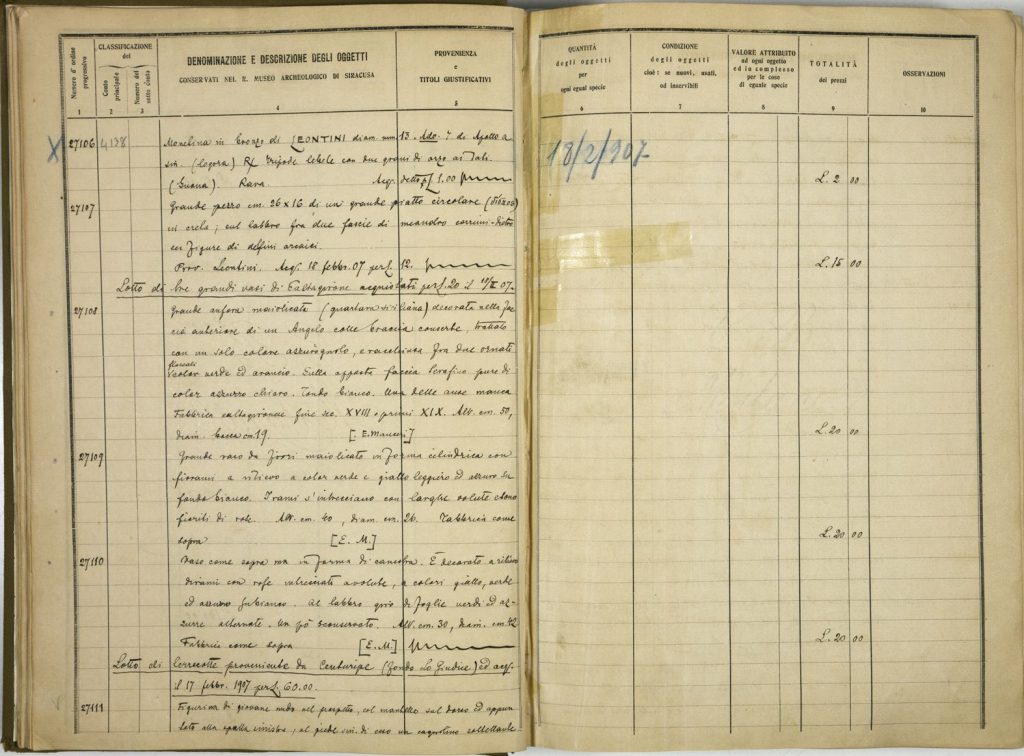 Numero d'ordine progressivo
CLASSIFICAZIONE
del
Conto principale
Numero del sotto conto
DENOMINAZIONE E DESCRIZIONE DEGLI OGGETTI
CONSERVATI NEL R. MUSEO ARCHEOLOGICO DI SIRACUSA
PROVENIENZA
e
TITOLI GIUSTIFICATIVI
1 2 3 4 5
X 27106 4138 Monetina in bronzo di LEONTINI diam. mm. 13. Ado. Apollo a
sin. (logora) tripode lebete con due grani di orzo ai lati.
Rara. Acq. £ 1.00
27107 Grande pezzo cm. 26 x 16 di un grande piatto circolare
in creta; sul labbro fra due fascie di meandro
figure di delfini arcaici.
Prov. Leontini. Acq. 18 febbr. 07 per £ 12.
Lotto di tre grandi vasi di Caltagirone acquistati per £. 20 il 07.
27108 Grande anfora maiolicata (quartara siciliana) decorata nella fac
cia anteriore di un Angelo colle braccia conserte, trattato
con un solo colore azzurrognolo, e racchiuso fra due ornati
floreali
color verde ed arancio. Sulla opposta faccia Serafino pure di
color azzurro chiaro. Fondo bianco. Una delle anse manca
Fabbrica caltagironese fine sec. XVIII o primi XIX. Alt. cm. 50,
diam. bocca cm. 19. [E. Mauceri]
27109 Grande vaso da fiori maiolicato in forma cilindrica con
fiorami a rilievo a color verde e giallo leggiero ed azzurro su
fondo bianco. I rami s'intrecciano con larghe volute e sono
fioriti di rose. Alt. cm. 40, diam. cm. 26. Fabbrica come
sopra [E. M.]
27110 Vaso come sopra ma in forma di canestra. È decorato a rilievo
di rami con rose intrecciati a volute, a colori giallo, verde
ed azzurro su bianco. Al labbro giro di foglie verdi ed az-
zurre alternate. Un pò sconservato. Alt. cm. 30, diam. cm. 42
Fabbrica come sopra [E. M.]
Lotto di terrecotte proveniente da Centuripe (fondo Lo Giudice) ed acq.
il 17 febbr. 1907 per £. 60.00.
27111 Figurina di giovane nudo nel prospetto, col mantello sul dorso ed appun
tato alla spalla sinistra; al piede sin. di esso un cagnolino
QUANTITÀ
degli oggetti
per
ogni egual specie
CONDIZIONE
degli oggetti
cioè: se nuovi, usati,
od inservibili
VALORE ATTRIBUITO
ad ogni oggetto
ed in complesso
per le cose
di eguale specie
TOTALITÀ
dei prezzi
OSSERVAZIONI
6 7 8 9 10
18/2/907
L. 2 00
L. 15 00
L. 20 00
L. 20 00
L. 20 00